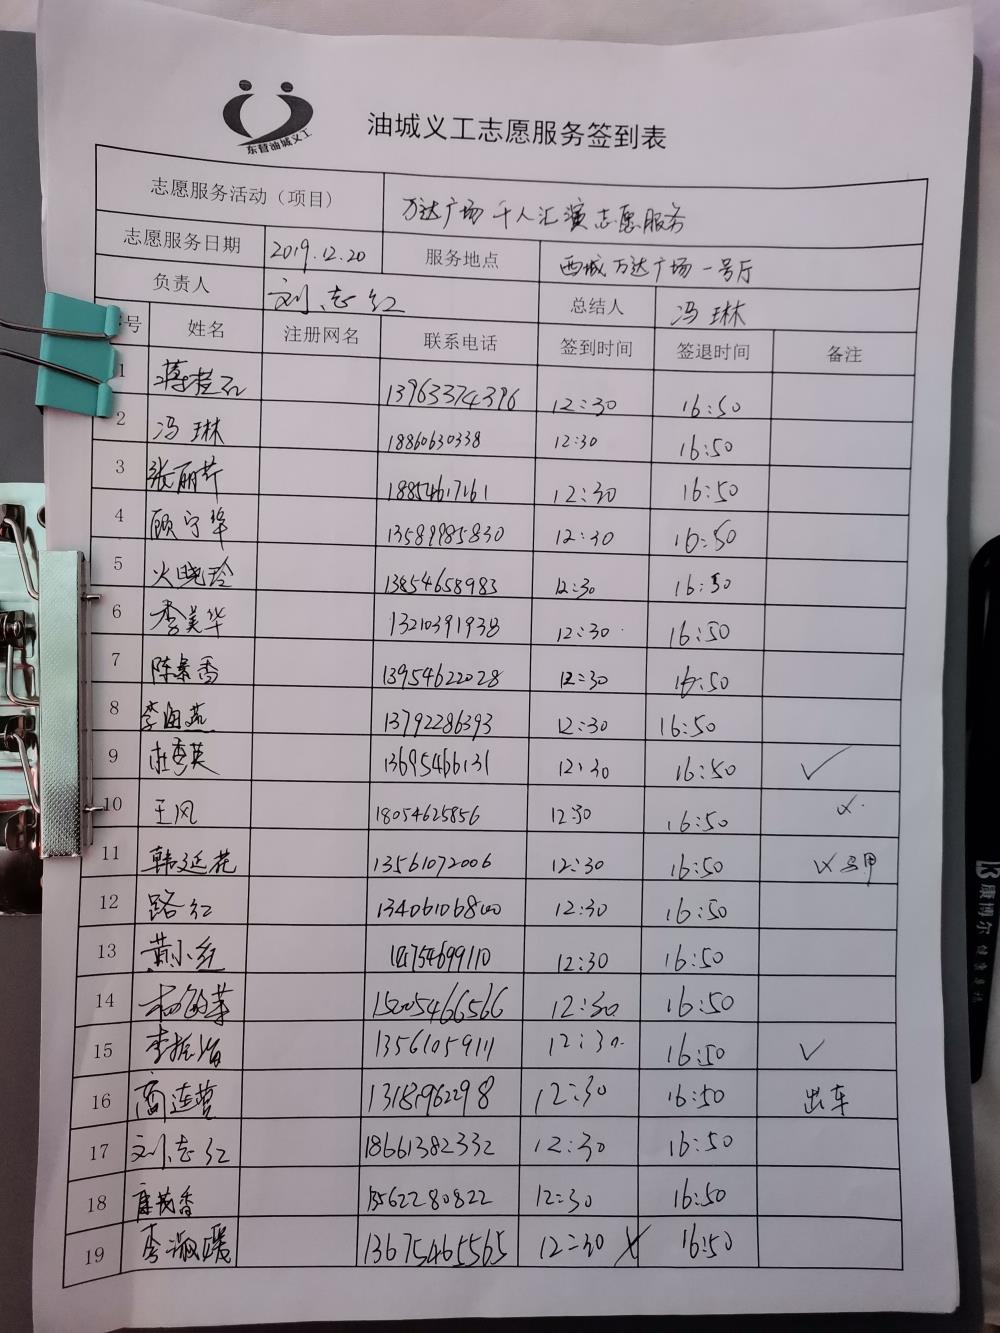 东营油城义工
油城义工志愿服务签到表
志愿服务活动（项目） 万达广场千人汇演志愿服务
志愿服务日期 2019.12.20 服务地点 西城万达广场一号厅
负责人 刘志红 总结人 冯琳
号 姓名 注册网名 联系电话 签到时间 签退时间 备注
1 蒋桂石 13963374396 12:30 16:50
2 冯琳 18860630338 12:30 16:50
3 张丽芹 18854617161 12:30 16:50
4 顾宁华 13589985830 12:30 16:50
5 火晓玲 13854658983 12:30 16:50
6 李美华 13210391938 12:30 16:50
7 陈素香 13954622028 12:30 16:50
8 李海燕 13792286393 12:30 16:50
9 杜秀英 13695466131 12:30 16:50 ✓
10 王风 18054625856 12:30 16:50 x
11 韩廷花 13561072006 12:30 16:50 x 马甲
12 路红 12:30 16:50
13 黄小红 12:30 16:50
14 15005466566 12:30 16:50
15 13561059111 12:30 16:50 ✓
16 商连营 13181962298 12:30 16:50 出车
17 刘志红 18661382332 12:30 16:50
18 唐茂香 13562280822 12:30 16:50
19 李淑暖 13675465565 12:30 x 16:50
13 康博尔